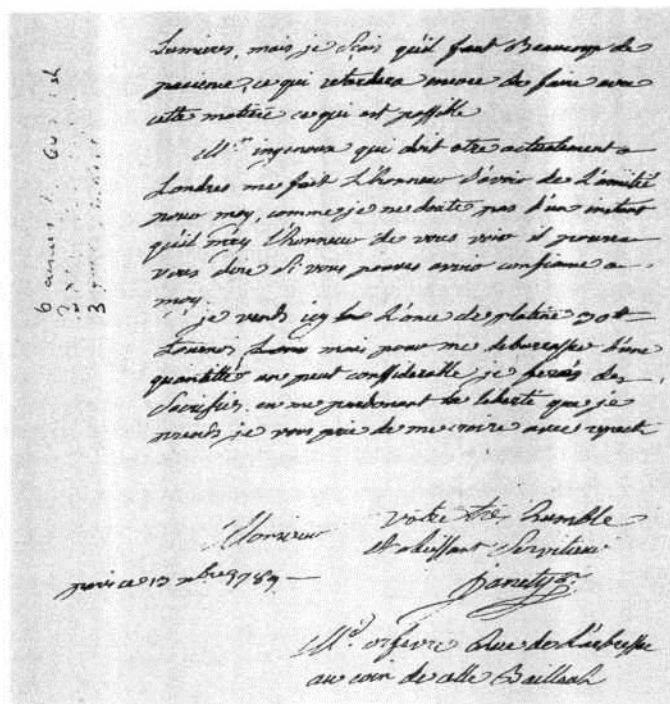 Lumieres, mais je sçais qu'il faut Beaucoup de
pacience, ce qui retardera encore de faire avec
cette matiere ce qui est possible
M.r ingenoux qui doit etre actuelement a
Londres me fait L'honneur d'avoir de L'amitié
pour moy, comme je ne doute pas d'un instant
qu'il n'ay L'honneur de vous voir il pourra
vous dire Si vous pouves avoir confiance a
moy.
je vends icy L'once de platine 30#
tournois mais pour me debarrasser d'une
quantitté un peut considerable je ferais des
Sacrifies. en me pardonant la liberté que je
prends je vous prie de me croire avec respect
Monsieur
Votre tres humble
Et obeissant Serviteur
Janety
paris ce 13 1789
M.d orfevre Rue de L'arbresec
au coin de celle Bailleul
6
2
3